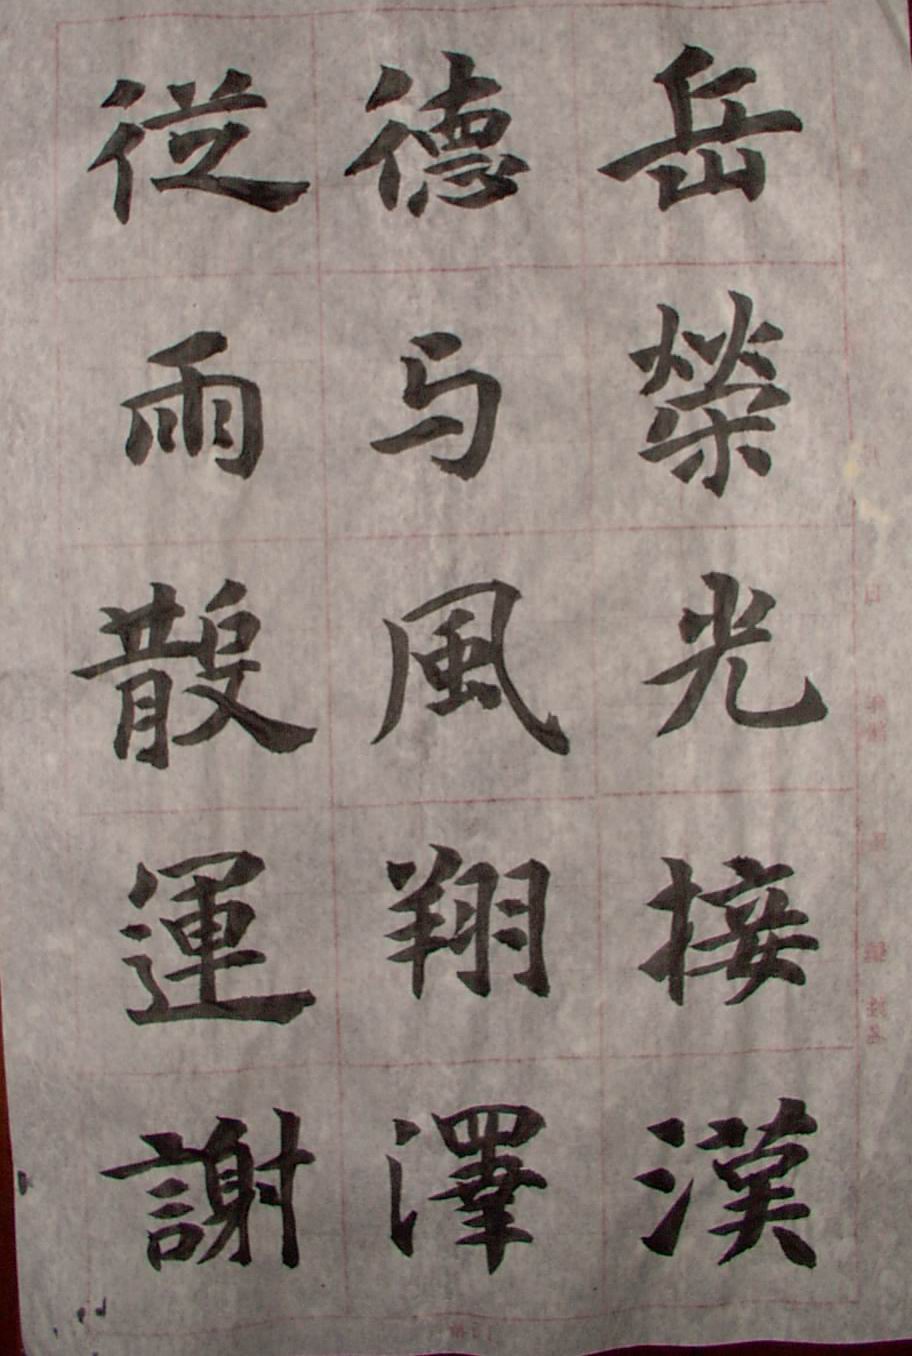 岳榮光接漢
德与風翔澤
従雨散運謝